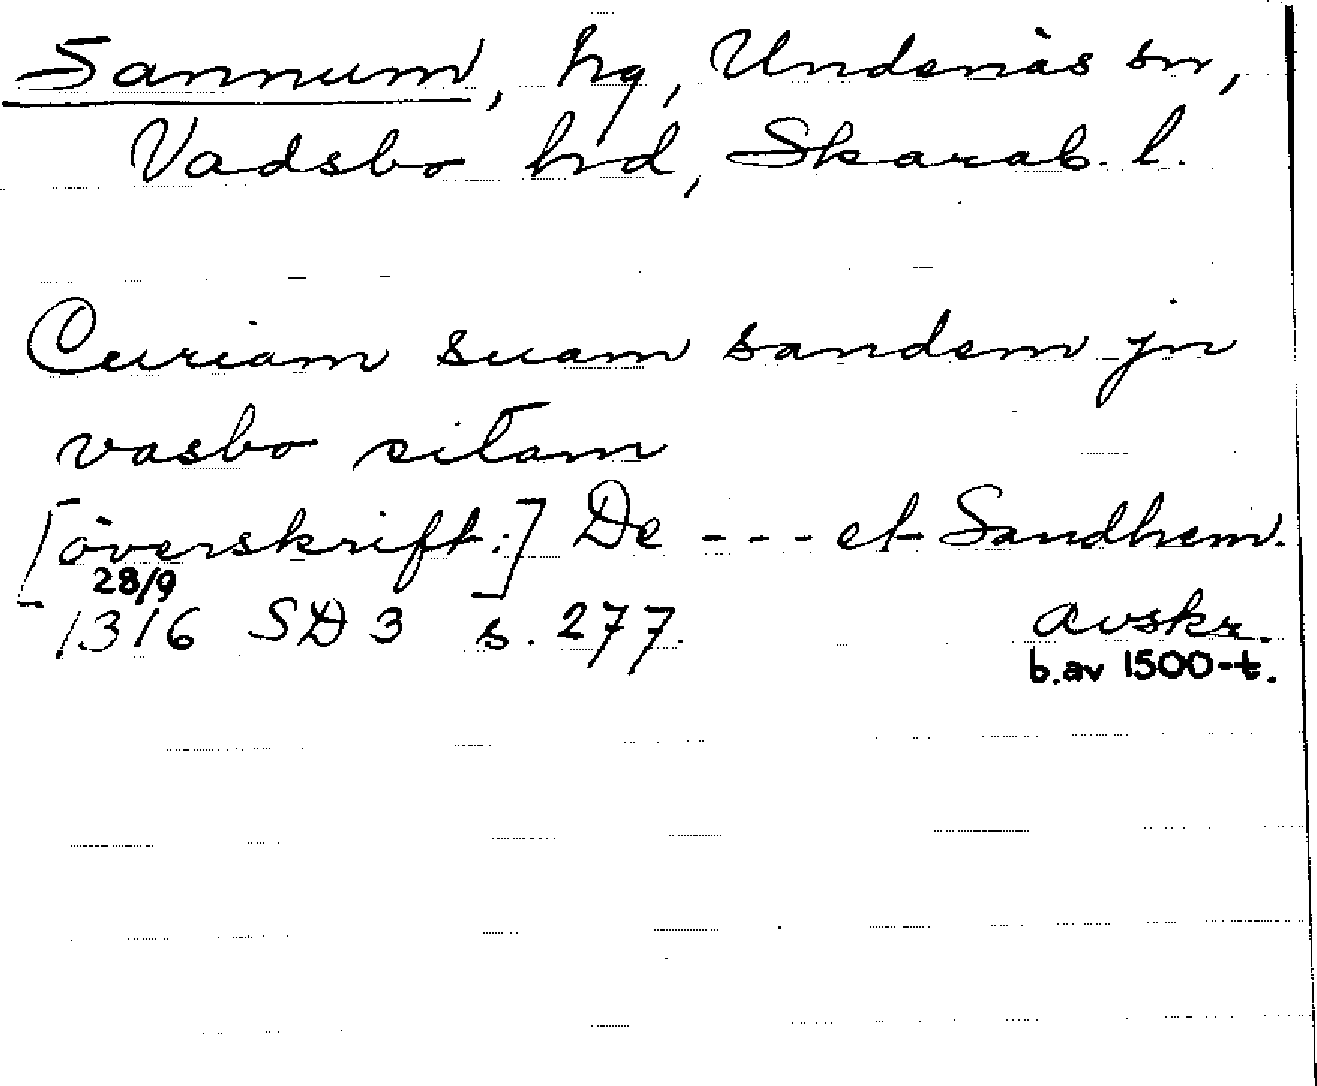 Sannum, hg, Undenäs sn,
Vadsbo hd, Skarab. l.
Curiam suam sandem jn
vasbo sitam
[överskrift:] De - - - et Sandhem.
28/9
1316 SD 3 s. 277. avskr.
b. av 1500-t.